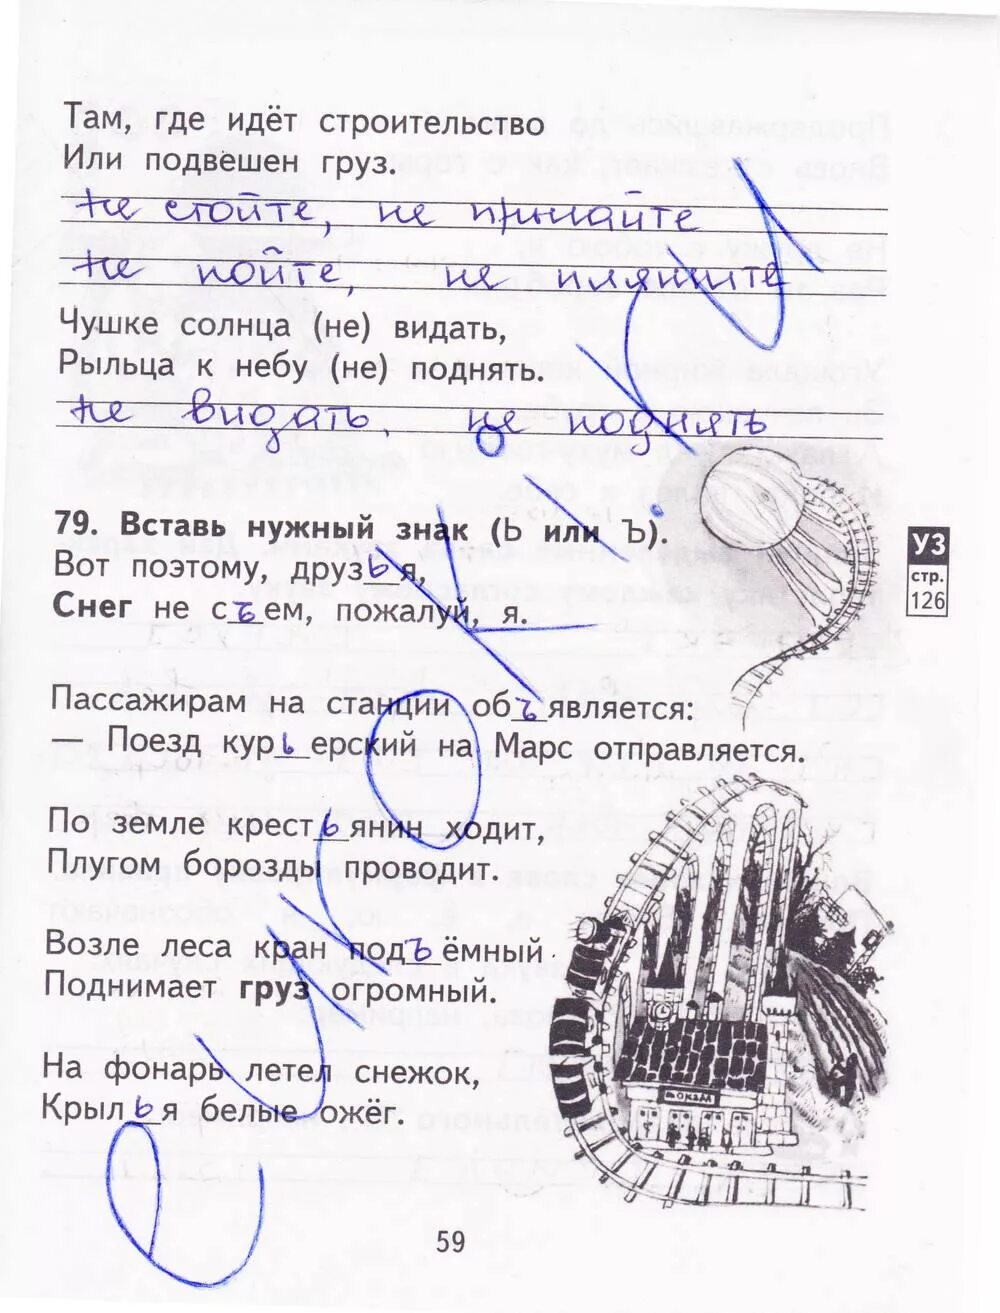 Там, где идёт строительство
Или подвешен груз.
не стойте, не прыгайте
не пойте, не пляшите
Чушке солнца (не) видать,
Рыльца к небу (не) поднять.
не видать, не поднять
79. Вставь нужный знак (Ь или Ъ).
Вот поэтому, друзья,
Снег не съем, пожалуй, я.
УЗ
стр.
126
Пассажирам на станции объявляется:
— Поезд курьерский на Марс отправляется.
По земле крестьянин ходит,
Плугом борозды проводит.
Возле леса кран подъёмный
Поднимает груз огромный.
На фонарь летел снежок,
Крылья белые ожёг.
59